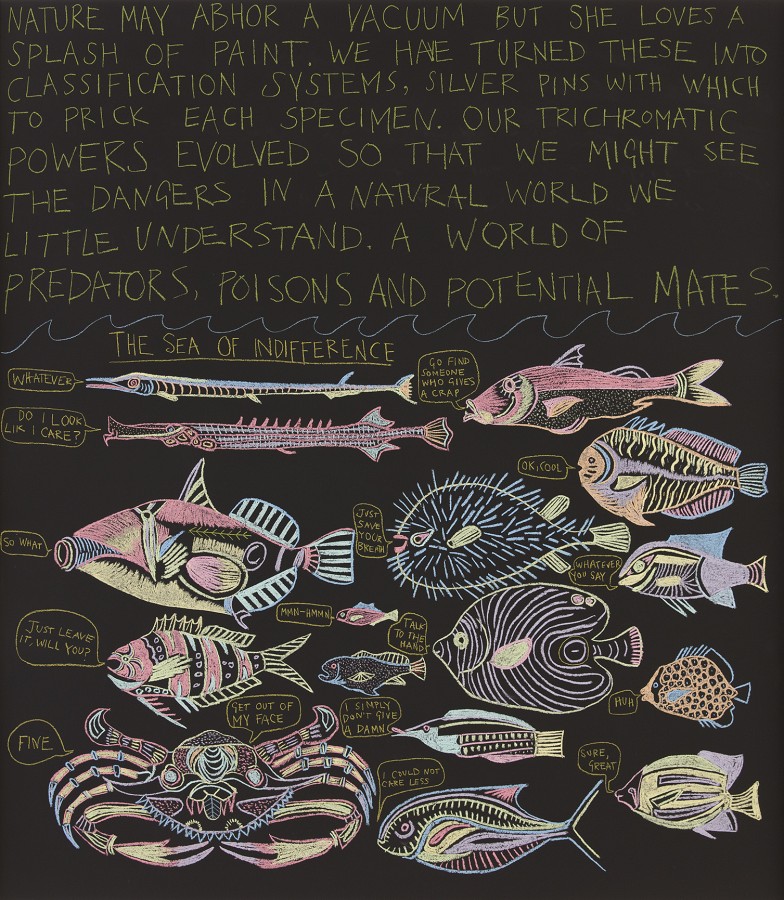 NATURE MAY ABHOR A VACUUM BUT SHE LOVES A
SPLASH OF PAINT. WE HAVE TURNED THESE INTO
CLASSIFICATION SYSTEMS, SILVER PINS WITH WHICH
TO PRICK EACH SPECIMEN. OUR TRICHROMATIC
POWERS EVOLVED SO THAT WE MIGHT SEE
THE DANGERS IN A NATURAL WORLD WE
LITTLE UNDERSTAND. A WORLD OF
PREDATORS, POISONS AND POTENTIAL MATES.
THE SEA OF INDIFFERENCE
WHATEVER
GO FIND
SOMEONE
WHO GIVES
A CRAP
DO I LOOK
LIK I CARE?
OK, COOL
SO WHAT
JUST
SAVE
YOUR
BREATH
WHATEVER
YOU SAY
MMN-HMMN
TALK
TO THE
HAND
JUST LEAVE
IT, WILL YOU?
HUH
GET OUT OF
MY FACE
I SIMPLY
DON'T GIVE
A DAMN
FINE
I COULD NOT
CARE LESS
SURE,
GREAT